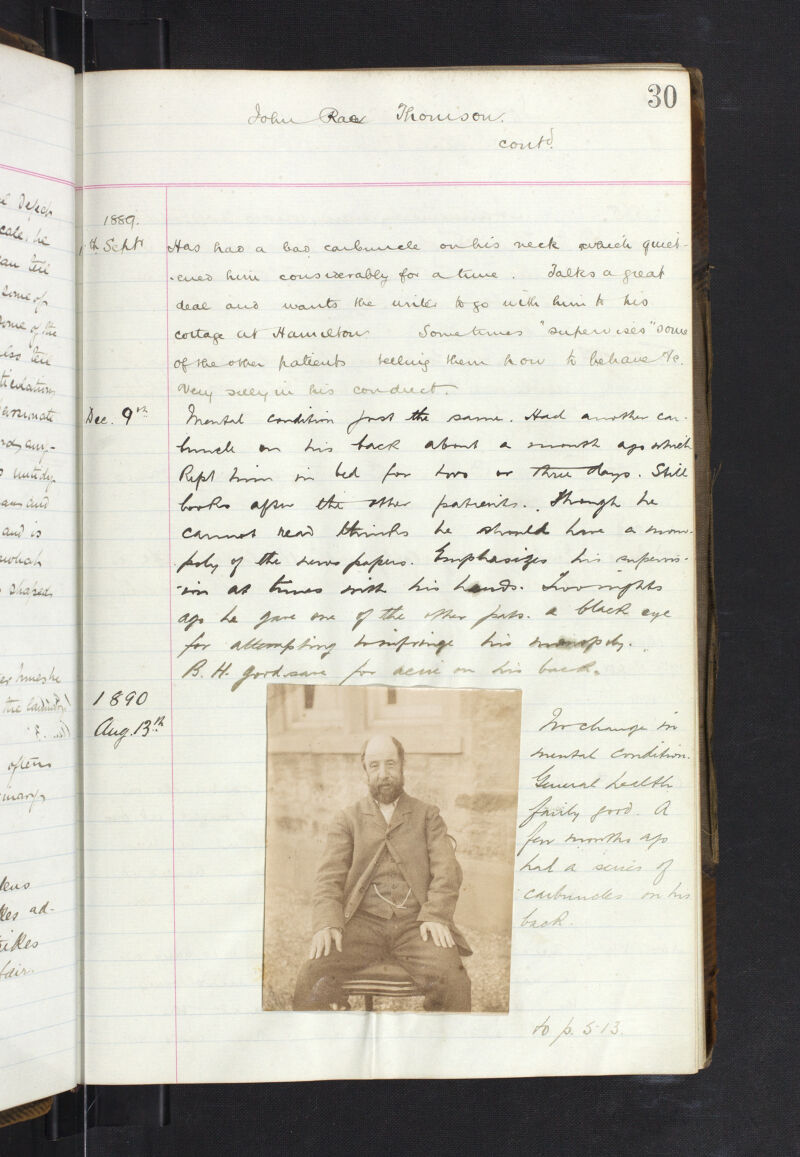 30
John Rae Thomson.
contd.
1889.
th Sept
Has had a bad carbuncle on his neck which quiet-
-ened him considerably for a time. Talks a great
deal and wants the writer to go with him to his
cottage at Hamilton Sometimes "supervises" some
of the other patients telling them how to behave &c.
Very silly in his conduct.
Dec. 9th
Mental condition just the same. Had another car-
buncle on his back about a month ago which
kept him in bed for two or three days. Still
looks after the other patients. Though he
cannot read thinks he should have a mono-
poly of the newspapers. Emphasizes his supervis-
-ion at times with his hands. Two nights
ago he gave one of the other pats. a black eye
for attempting to infringe his monopoly.
B. H. good save for acne on his back.
1890
Aug. 13th
No change in
mental condition.
General health
fairly good. A
few months ago
had a series of
carbuncles on his
back.
to p. 513.
e Defect
cale, he
can tell
some of
some of the
also tell
ticulation
and is
which
shaped
often
kes ad-